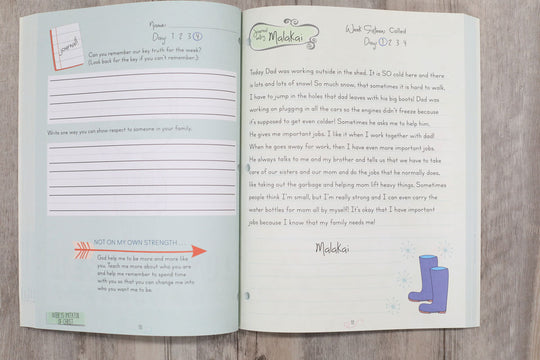 Name:
Day: 1 2 3 4
Can you remember our key truth for the week?
(Look back for the key if you can't remember.)
Write one way you can show respect to someone in your family.
NOT ON MY OWN STRENGTH . . .
God help me to be more and more like
you. Teach me more about who you are
and help me remember to spend time
with you so that you can change me into
who you want me to be.
OF CHRIST
Malakai
Week Sixteen: Called
Day: 1 2 3 4
Today Dad was working outside in the shed. It is SO cold here and there
is lots and lots of snow! So much snow, that sometimes it is hard to walk.
I have to jump in the holes that dad leaves with his big boots! Dad was
working on plugging in all the cars so the engines didn't freeze because
it's supposed to get even colder! Sometimes he asks me to help him.
He gives me important jobs. I like it when I work together with dad!
When he goes away for work, then I have even more important jobs.
He always talks to me and my brother and tells us that we have to take
care of our sisters and our mom and do the jobs that he normally does,
like taking out the garbage and helping mom lift heavy things. Sometimes
people think I'm small, but I'm really strong and I can even carry the
water bottles for mom all by myself! It's okay that I have important
jobs because I know that my family needs me!
Malakai